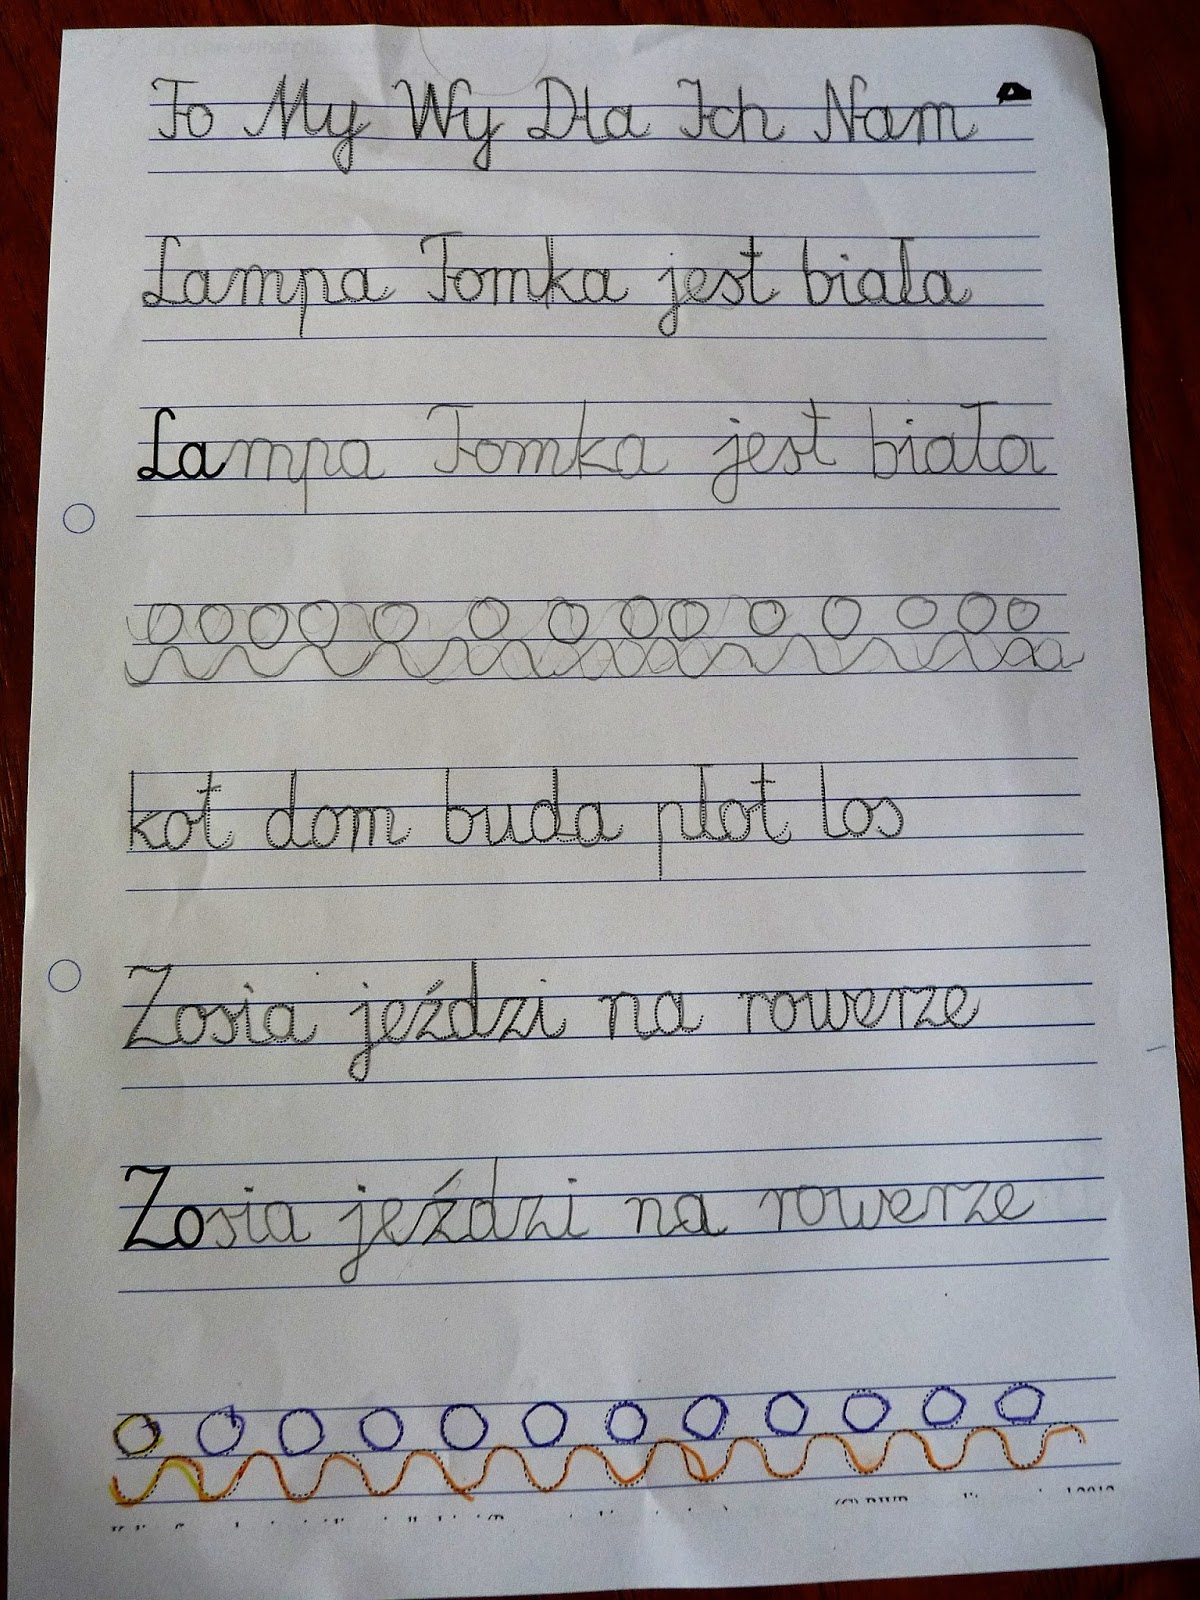 To My Wy Dla Ich Nam
Lampa Tomka jest biała
Lampa Tomka jest biała
kot dom buda płot los
Zosia jeździ na rowerze
Zosia jeździ na rowerze